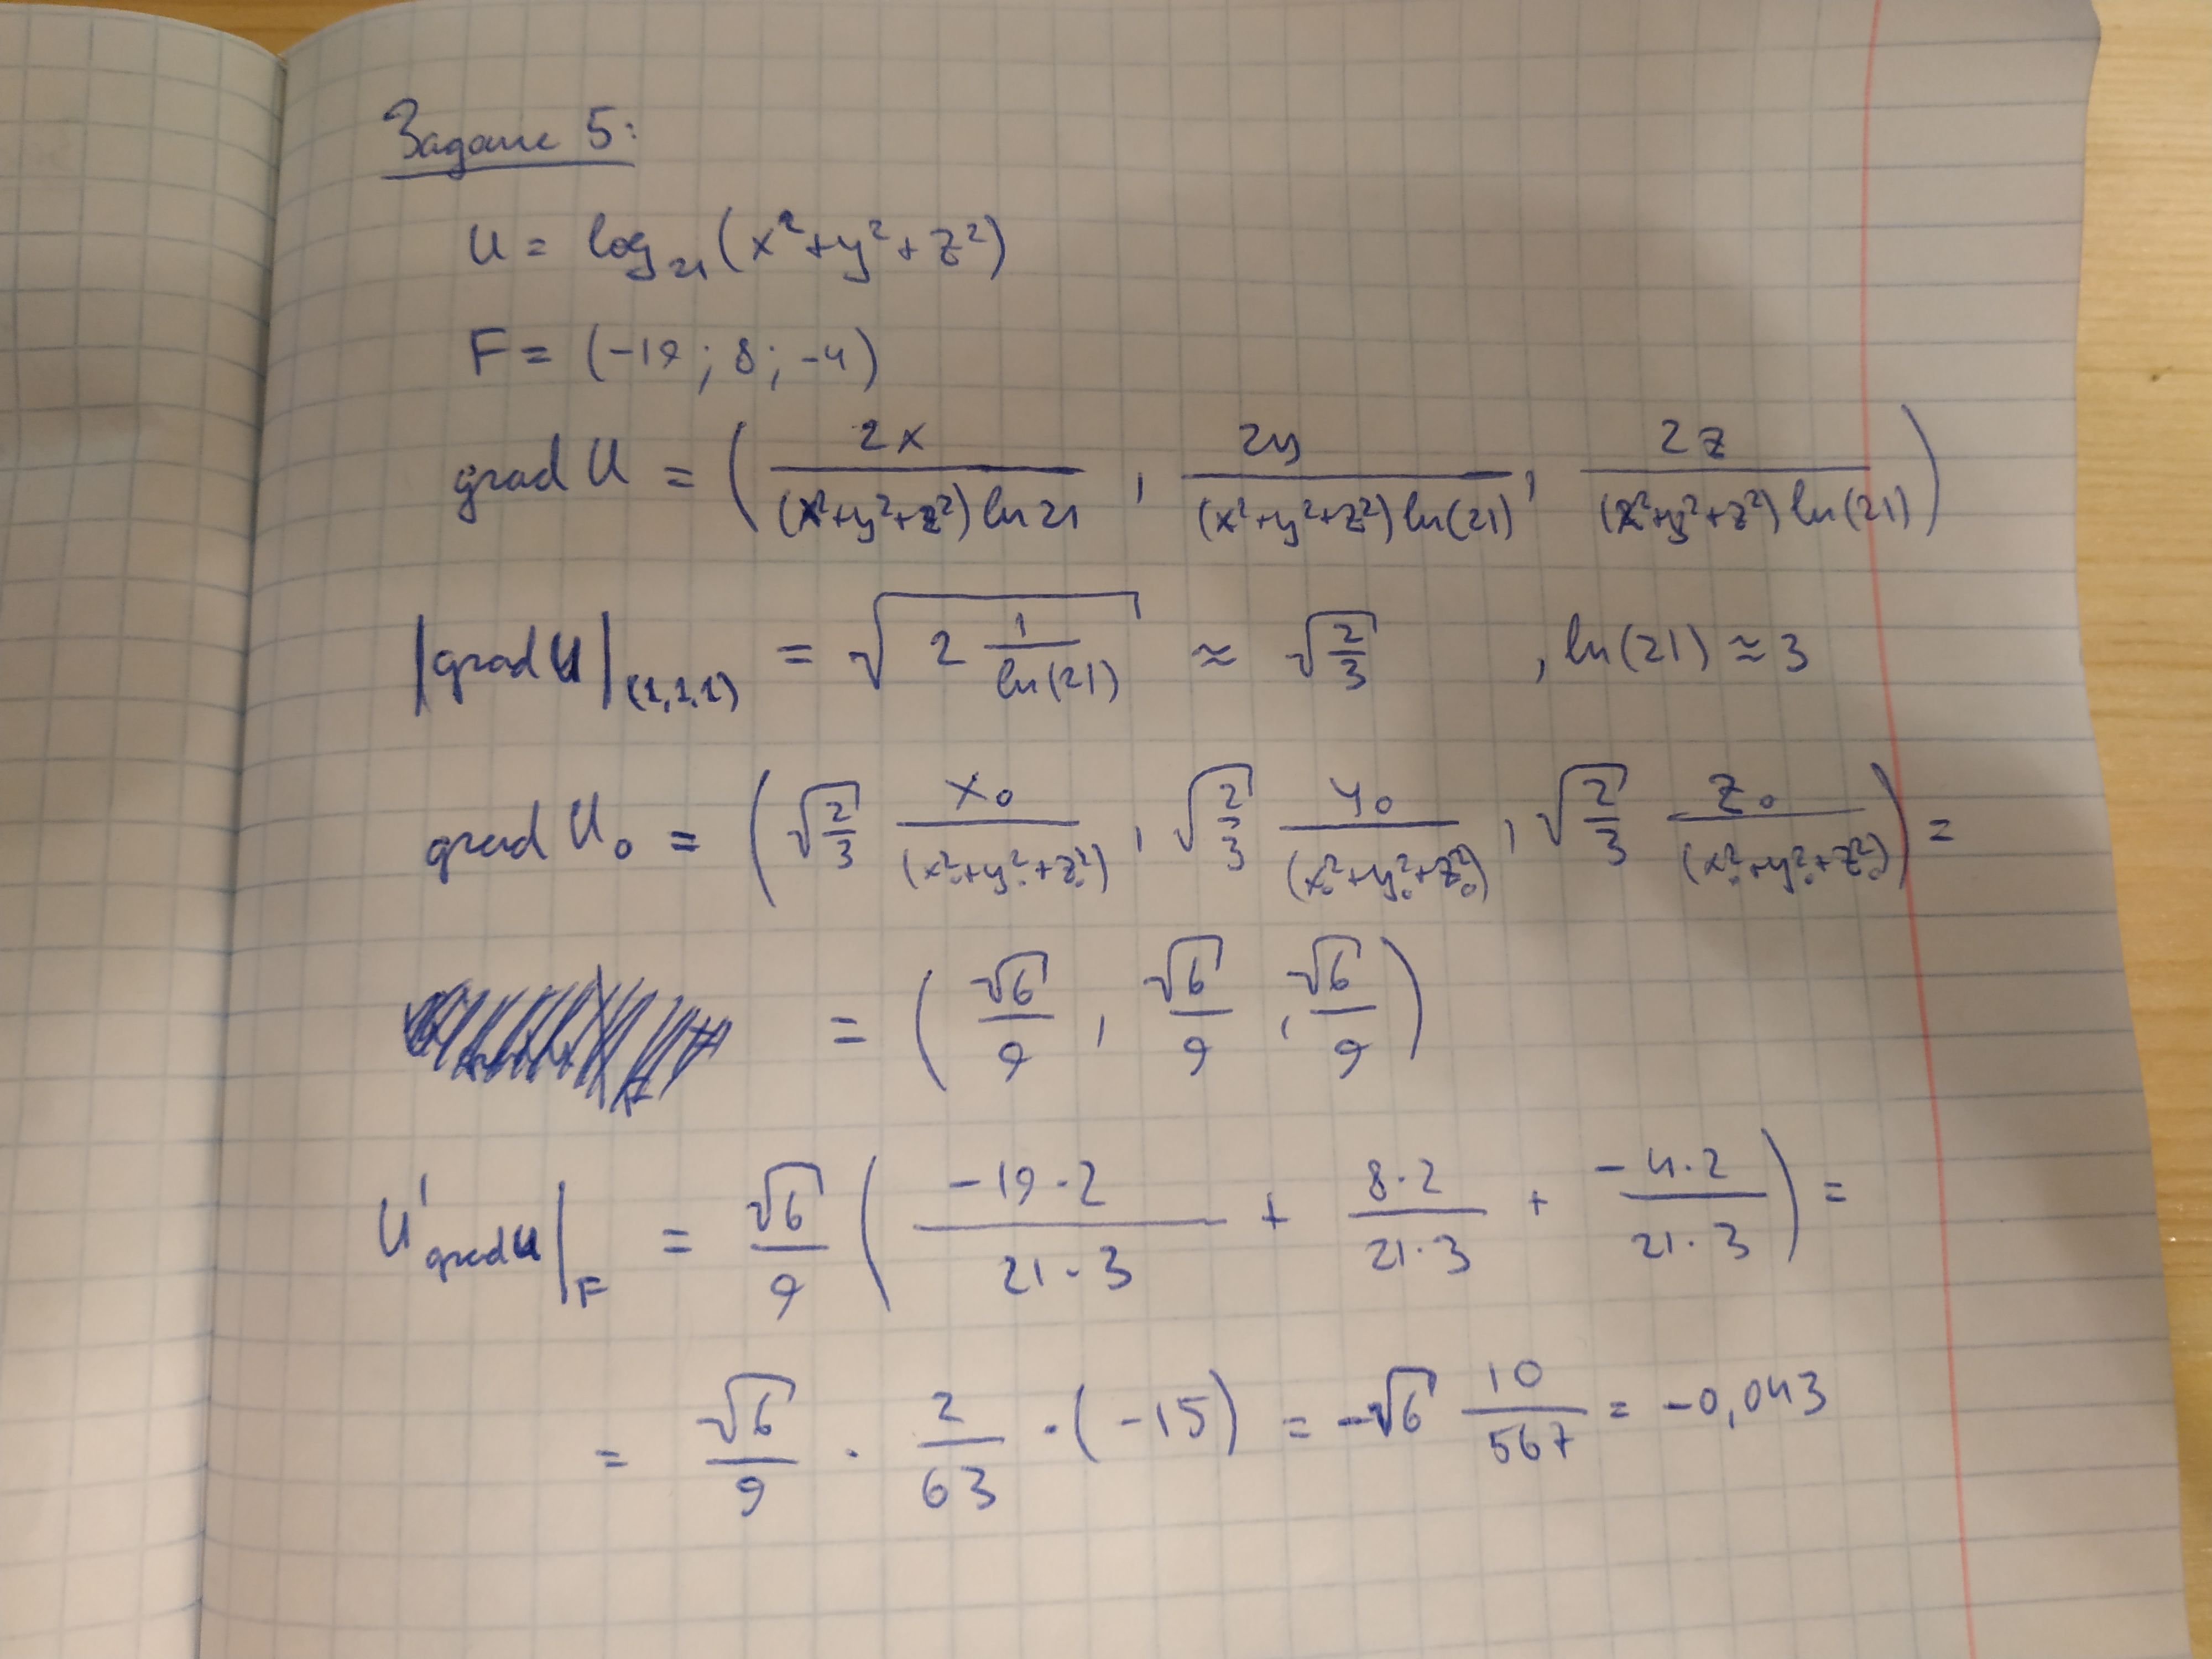 Задание 5:
U = log₂₁(x²+y²+z²)
F = (-19; 8; -4)
grad U = (2x/((x²+y²+z²) ln 21), 2y/((x²+y²+z²) ln(21)), 2z/((x²+y²+z²) ln(21)))
|grad U|(1,1,1) = √(2 1/ln(21)) ≈ √(2/3) , ln(21) ≈ 3
grad U₀ = (√(2/3) x₀/(x₀²+y₀²+z₀²), √(2/3) y₀/(x₀²+y₀²+z₀²), √(2/3) z₀/(x₀²+y₀²+z₀²)) =
= (√6/9, √6/9, √6/9)
U'grad u|F = √6/9 (-19·2/(21·3) + 8·2/(21·3) + -4·2/(21·3)) =
= √6/9 · 2/63 · (-15) = -√6 10/567 = -0,043